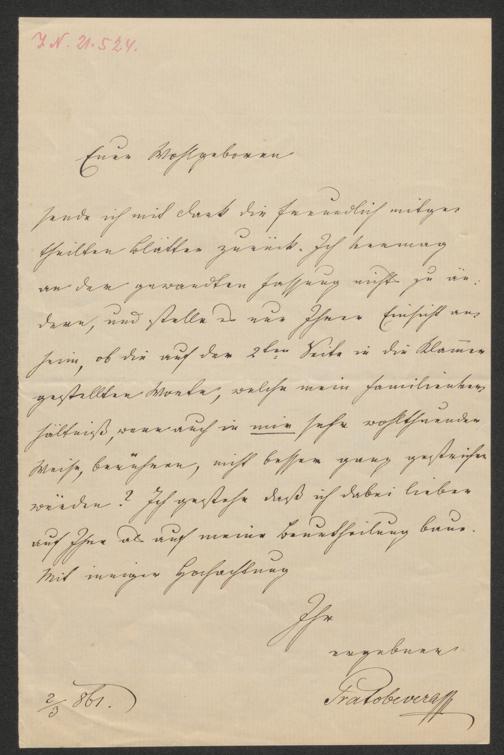 I. N. 21.524.
Euer Wohlgeboren
sende ich mit Dank die freundlich mitge-
theilten Blätter zurück. Ich vermag
an der gewandten Fassung nichts zu än-
dern, und stelle es nur Ihrer Einsicht an-
heim, ob die auf der 2ten Seite in die Klammer
gestellten Worte, welche mein Familienver-
hältniß, wenn auch in mir sehr wohlthuender
Weise, berühren, nicht besser ganz gestrichen
würden? Ich gestehe daß ich dabei lieber
auf Ihre als auf meine Beurtheilung baue.
Mit inniger Hochachtung
Ihr
ergebener
Pratobevera
2/3 861.